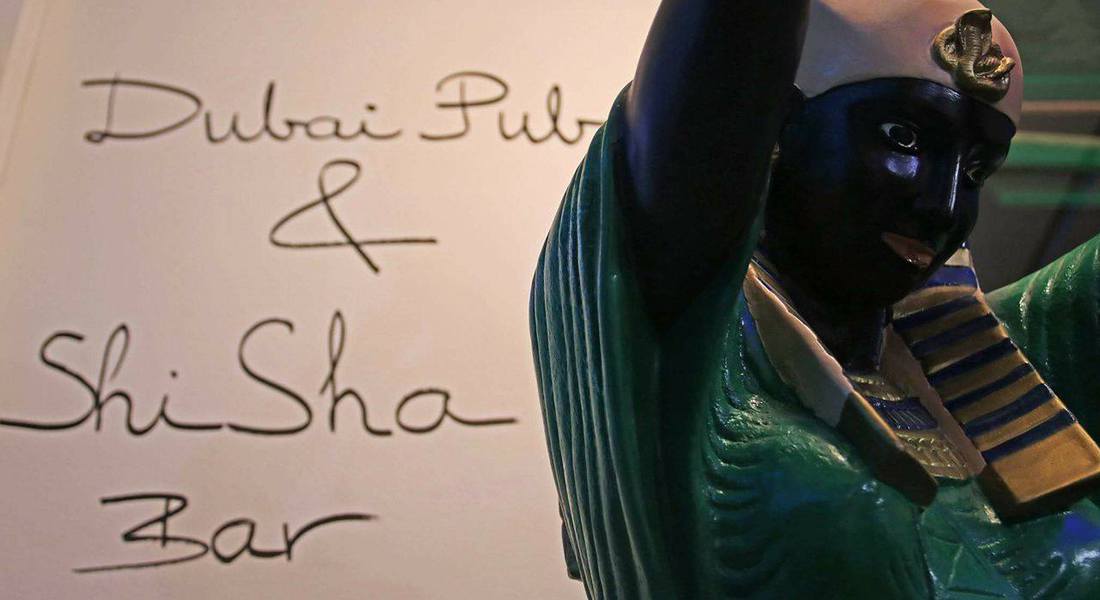 Dubai Pub
&
ShiSha
Bar